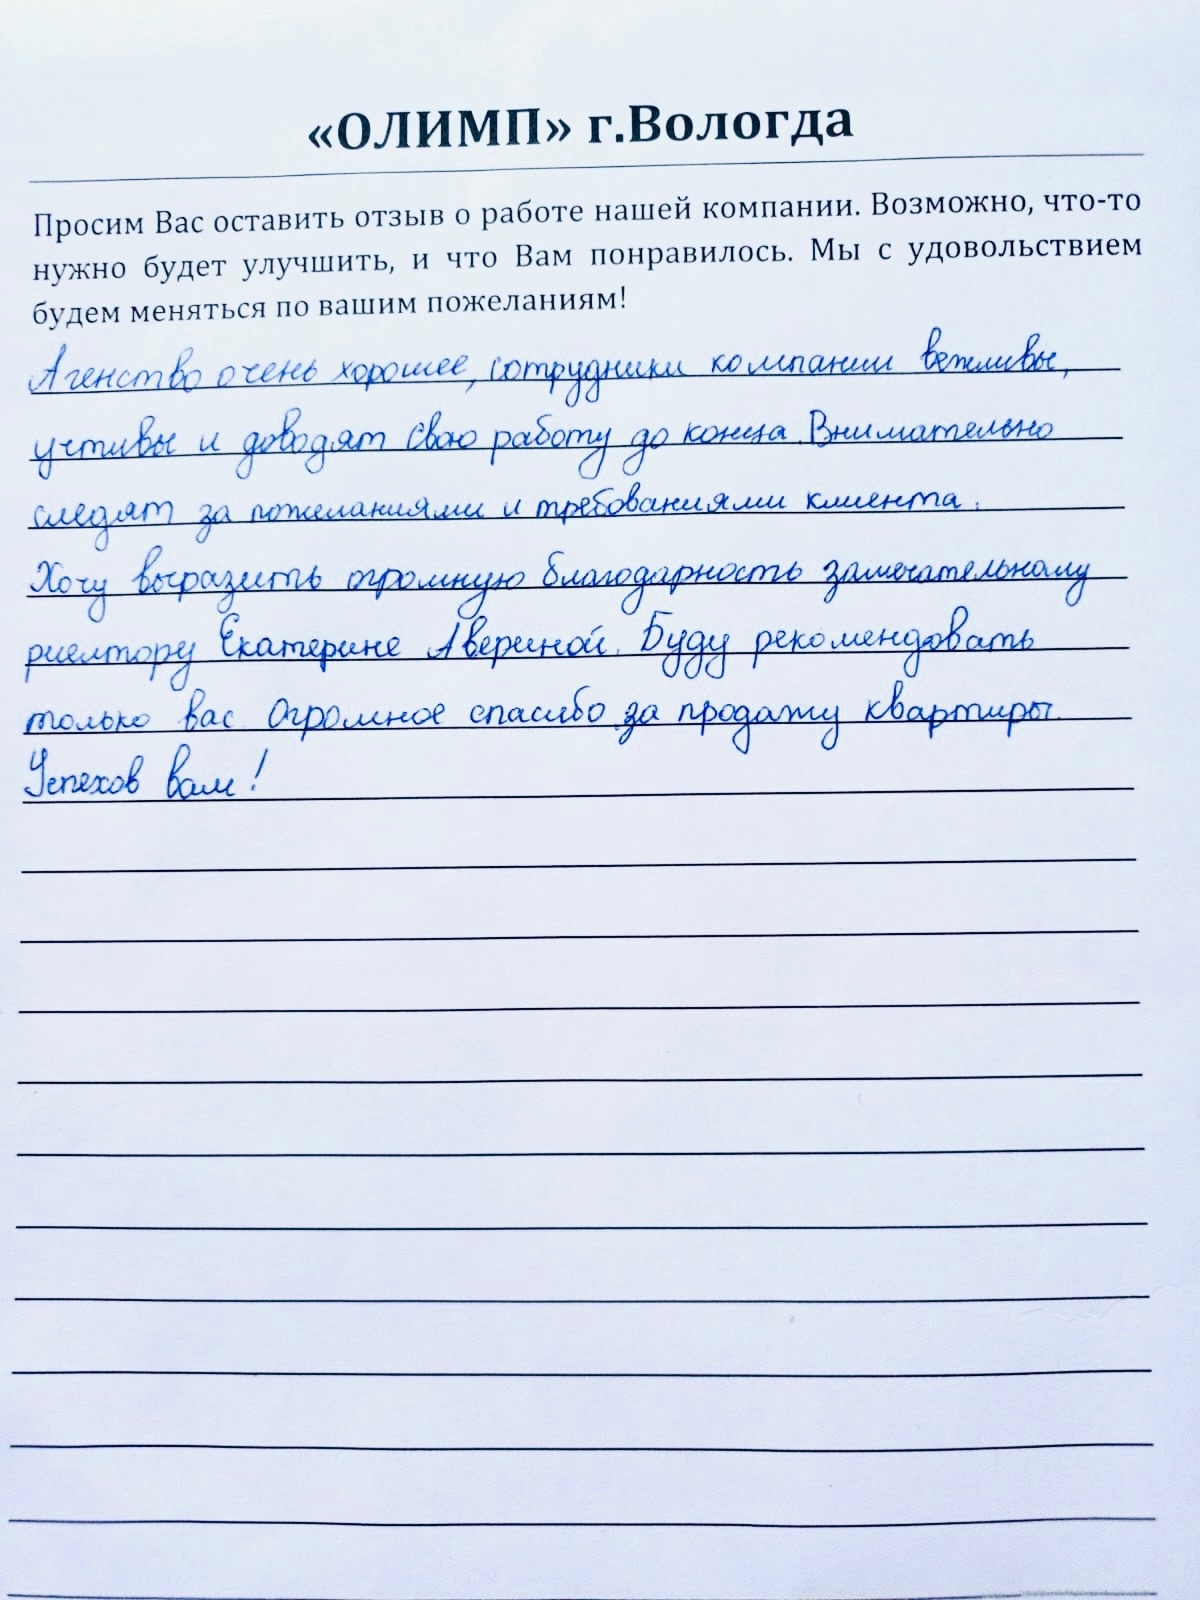 «ОЛИМП» г.Вологда
Просим Вас оставить отзыв о работе нашей компании. Возможно, что-то
нужно будет улучшить, и что Вам понравилось. Мы с удовольствием
будем меняться по вашим пожеланиям!
Агенство очень хорошее, сотрудники компании вежливы,
учтивы и доводят свою работу до конца. Внимательно
следят за пожеланиями и требованиями клиента.
Хочу выразить огромную благодарность замечательному
риелтору Екатерине Авериной. Буду рекомендовать
только вас. Огромное спасибо за продажу квартиры.
Успехов вам!